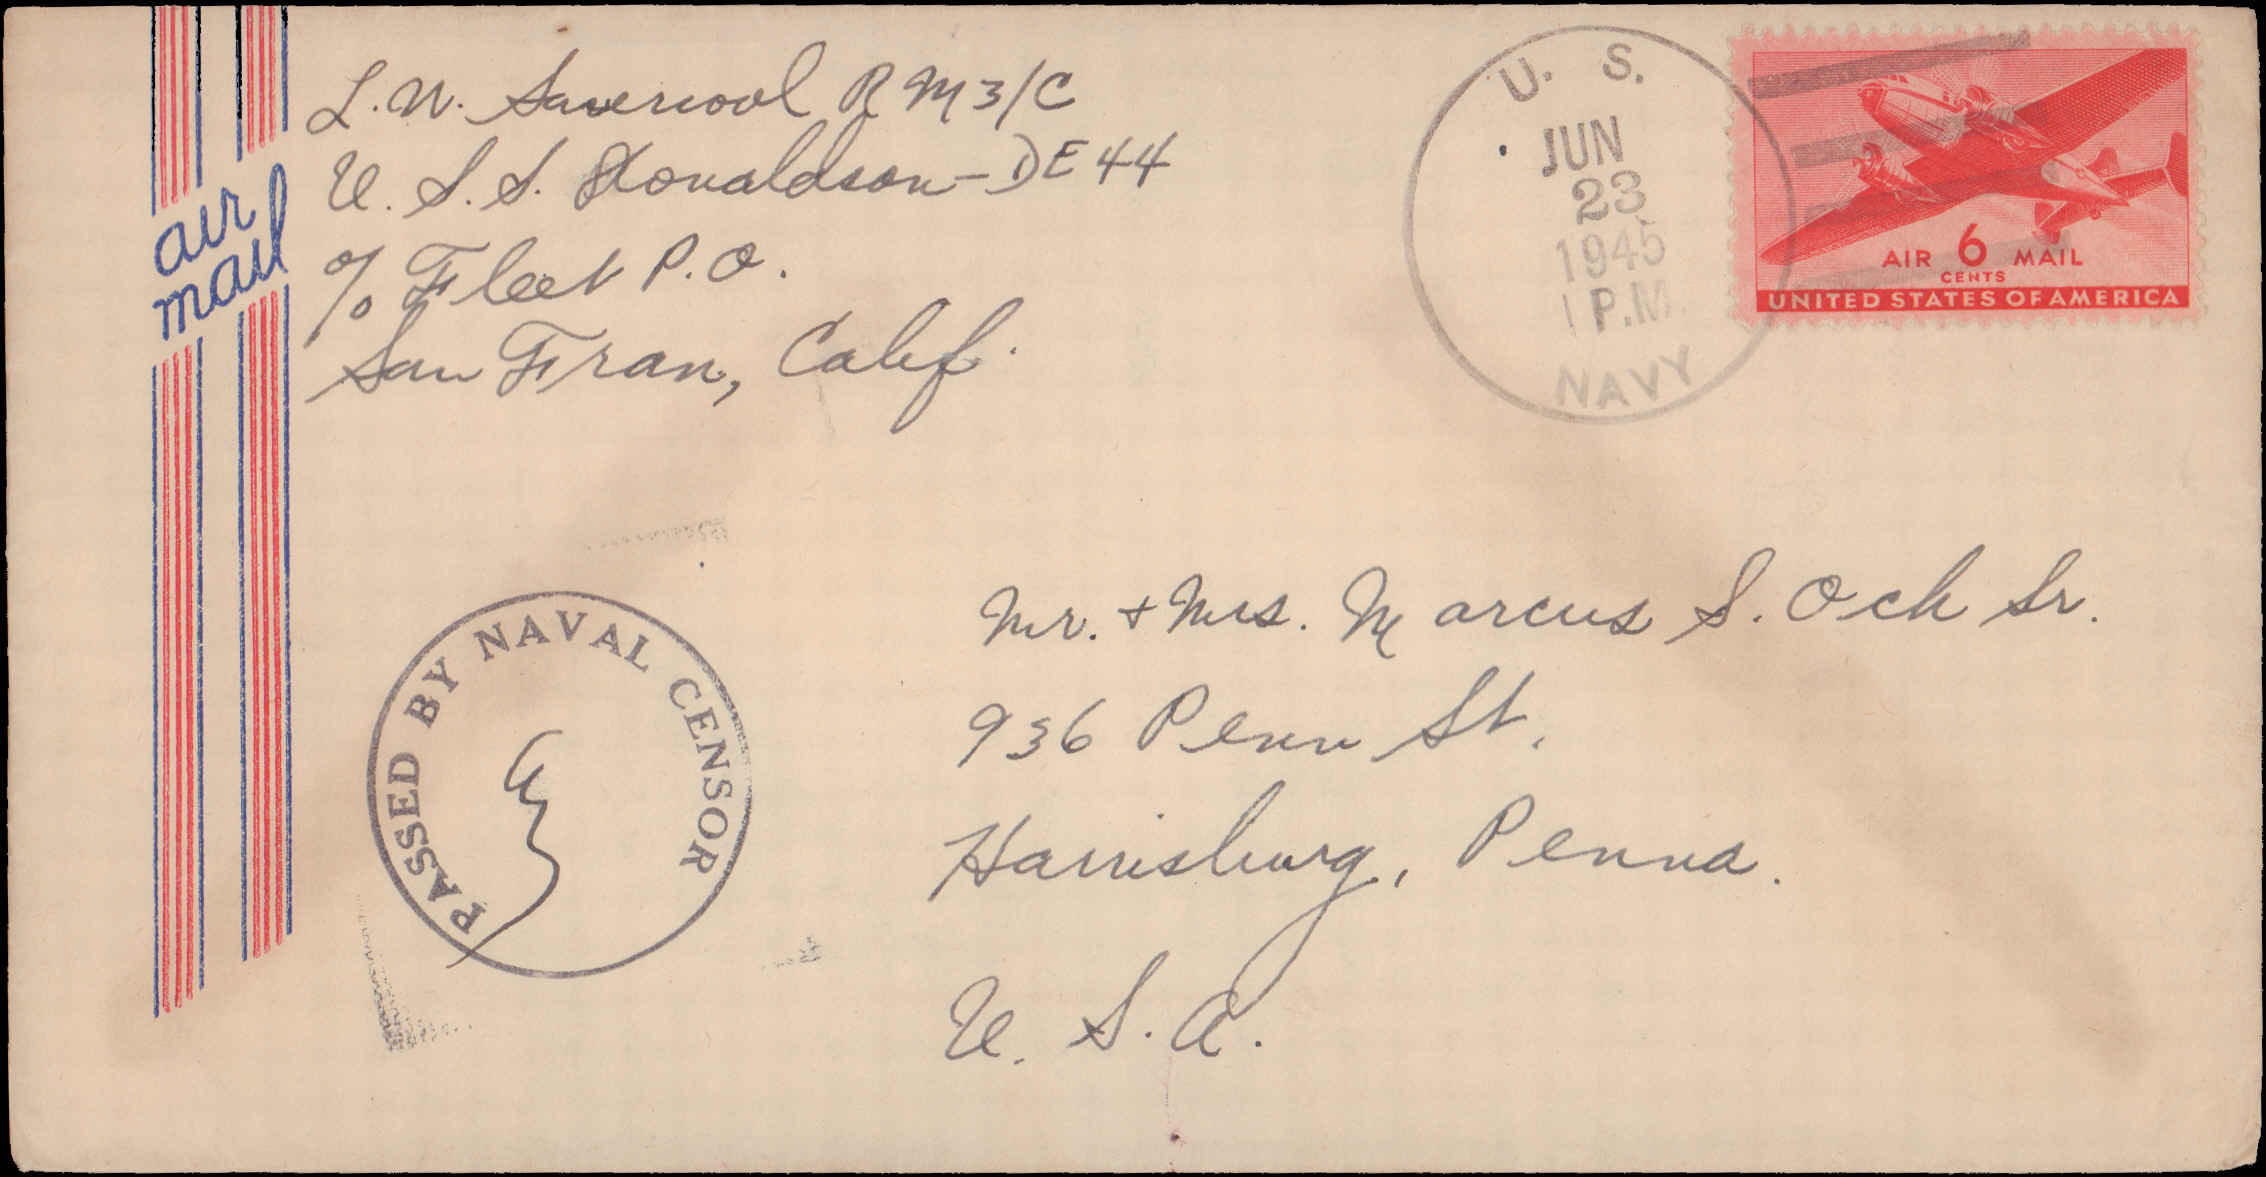 air
mail
L. W. RM 3/C
U. S. S. Donaldson - DE 44
c/o Fleet P. O.
San Fran, Calif.
U. S.
JUN
23
1945
1 P.M.
NAVY
AIR 6 MAIL
CENTS
UNITED STATES OF AMERICA
PASSED BY NAVAL CENSOR
Mr. + Mrs. Marcus S. Och Sr.
936 Penn St.
Harrisburg, Penna.
U. S. A.